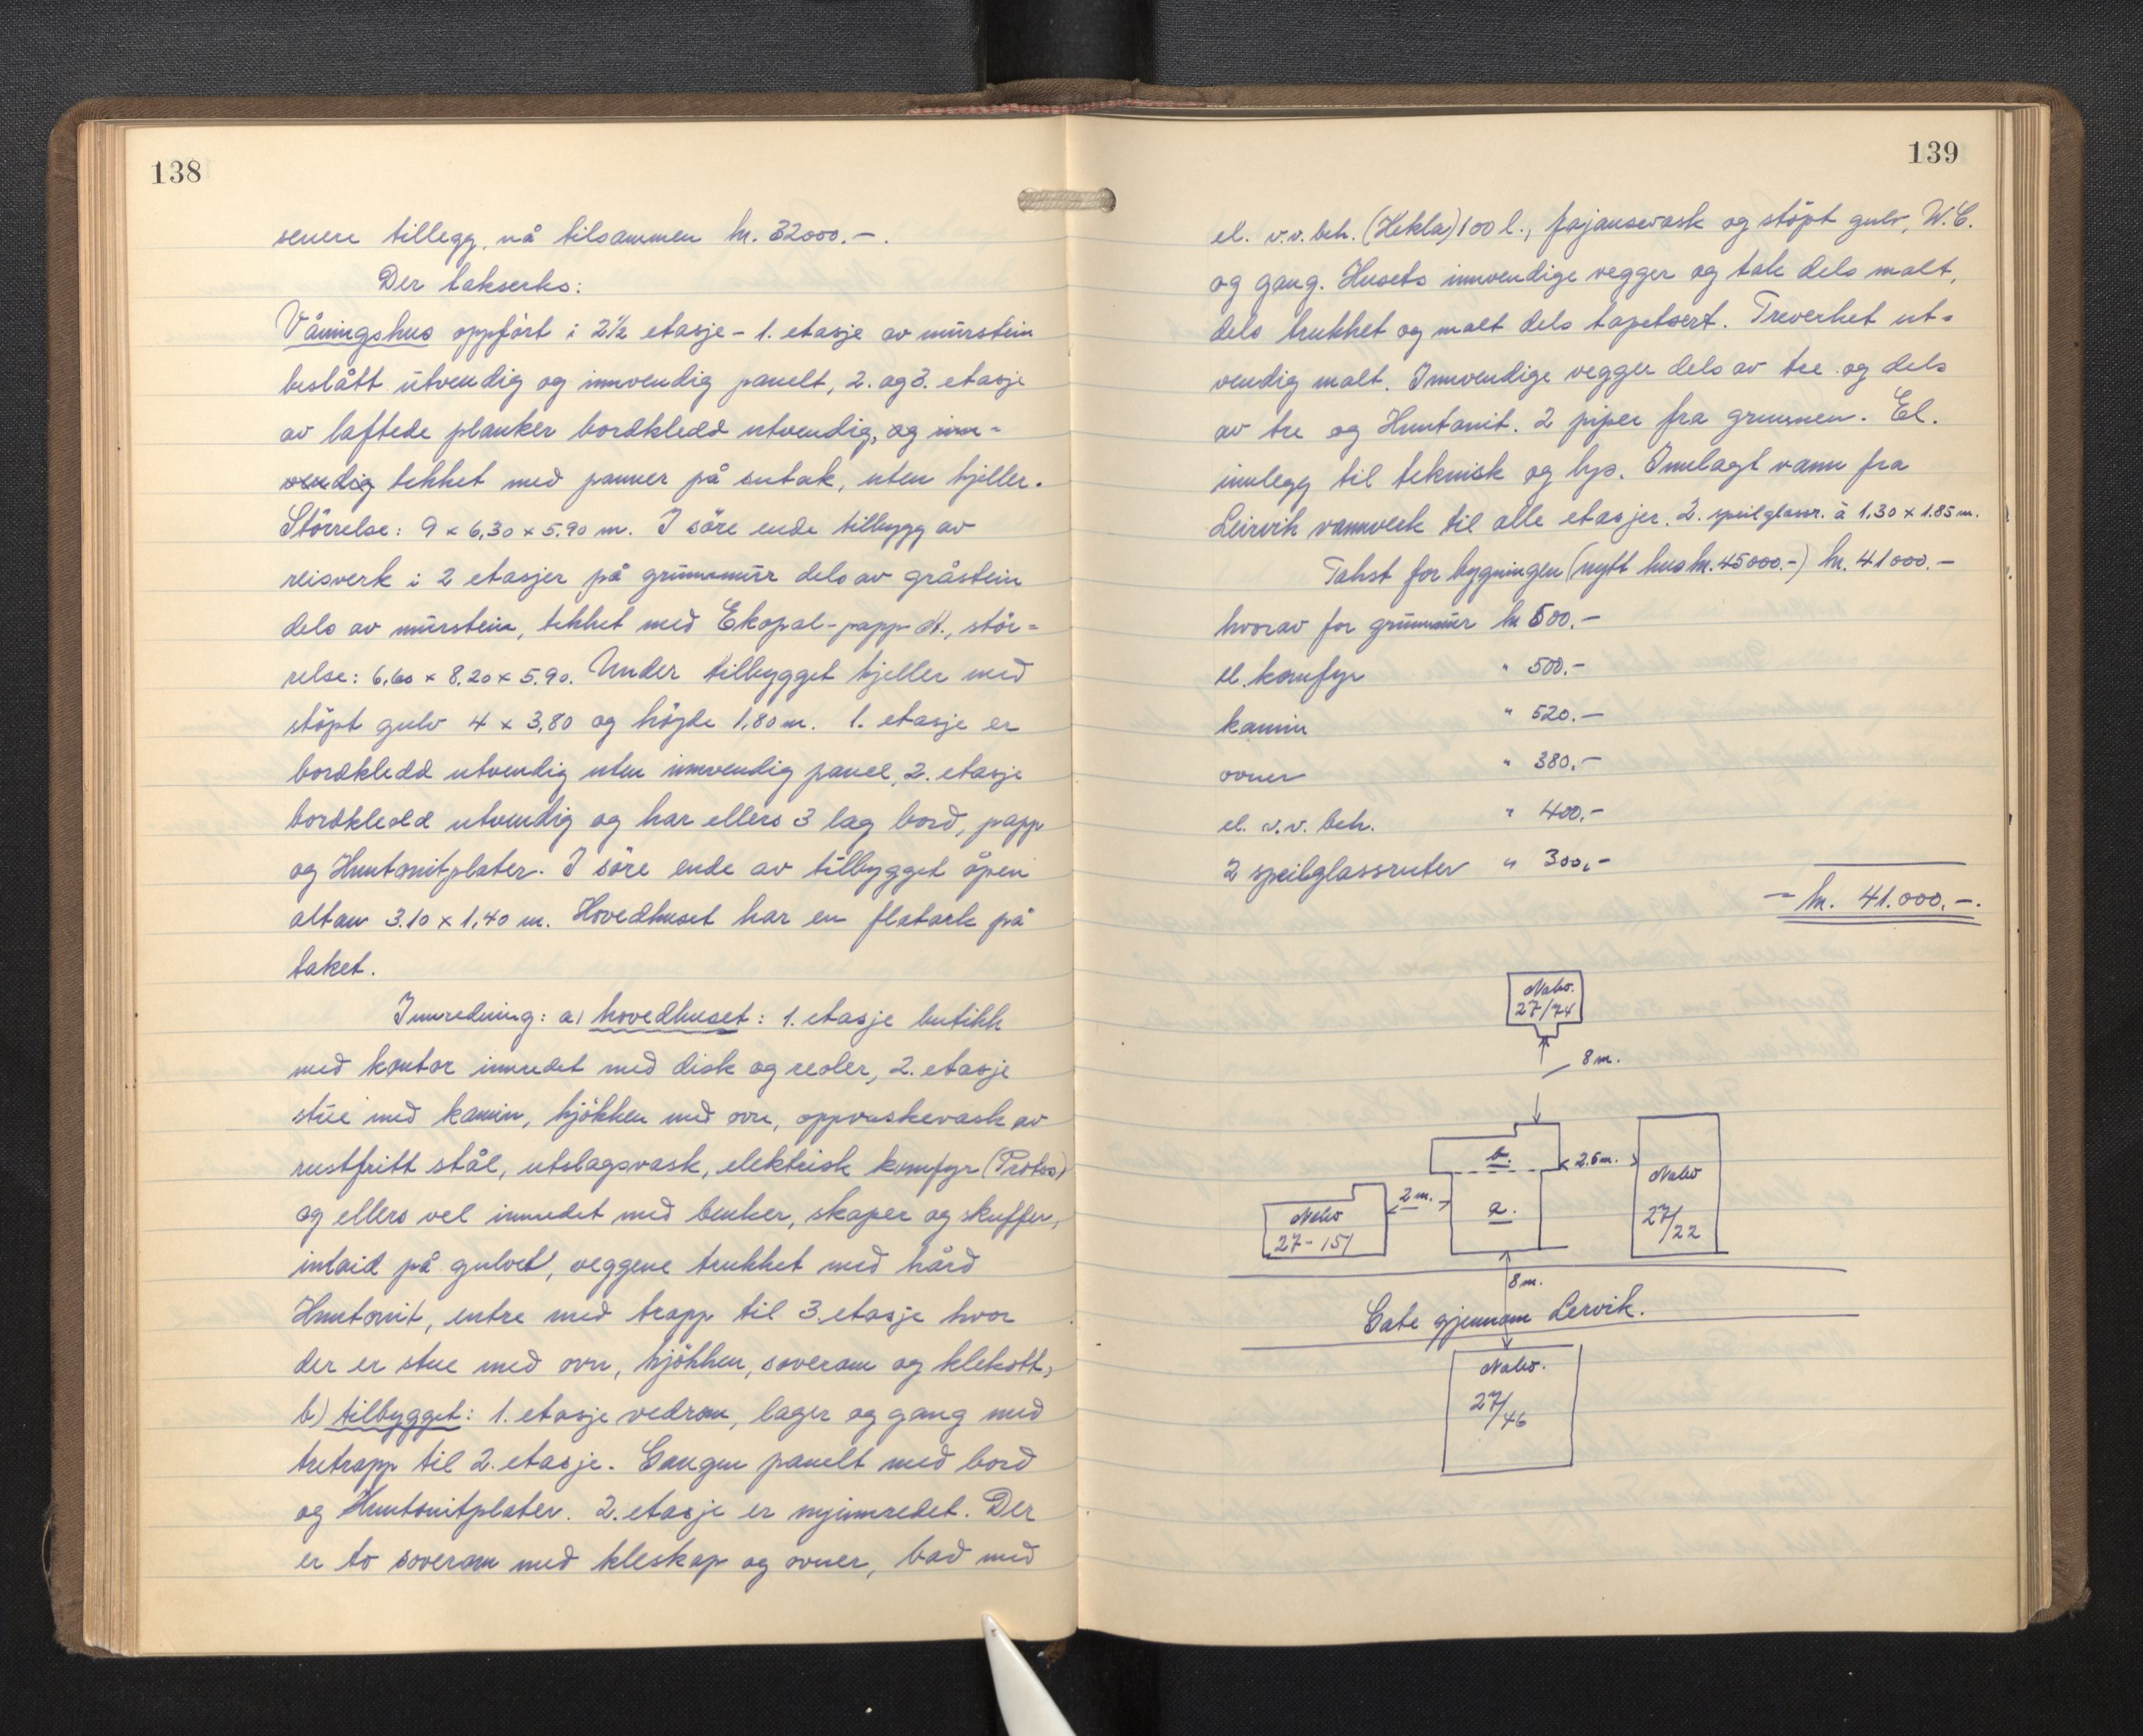 138
senere tillegg, nå tilsammen kr. 32000.-.
Der takserks:
Våningshus oppført i 2½ etasje - 1. etasje av mürstein
beslått ütvendig og innvendig panelt, 2. og 3. etasje
av laftede planker bordkledd utvendig, og inn-
vendig tekket med panner på sutak, uten kjeller.
Störrelse: 9 x 6,30 x 5.90 m. I söre ende tilbygg av
reisverk i 2 etasjer på grünnmür dels av gråstein
dels av mürstein, tekket med Ekopal-papp, stör-
relse: 6,60 x 8.20 x 5.90. Under tilbygget kjeller med
støpt gulv 4 x 3,80 og höyde 1,80 m. 1. etasje er
bordkledd utvendig uten innvendig panel, 2. etasje
bordkledd utvendig og har ellers 3 lag bord, papp
og Huntonitplater. I söre ende av tilbygget åpen
altan 3.10 x 1,40 m. Hovedhuset har en flatark på
taket.
Innredning: a) hovedhuset: 1. etasje butikk
med kontor innredet med disk og reoler, 2. etasje
stüe med kamin, kjökken med ovn, oppvaskevask av
rustfritt stål, utslagsvask, elektrisk komfyr (Protos)
og ellers vel innredet med benker, skaper og skuffer,
inlaid på gulvet, veggene trukket med hård
Huntonit, entre med trapp til 3. etasje hvor
der er stue med ovn, kjökken, soverom og klekott,
b) tilbygget: 1. etasje vedrom, lager og gang med
tretrapp til 2. etasje. Gangen panelt med bord
og Huntonitplater. 2. etasje er nyinnredet. Der
er to soverom med kleskap og ovner, bad med
139
el. v.v. beh. (Hekla) 100 l., fajansevask og støpt gulv, W.C.
og gang. Husets innvendige vegger og tak dels malt,
dels trukket og malt dels tapetsert. Treverket ut-
vendig malt. Innvendige vegger dels av tre og dels
av tre og Huntonit. 2 piper fra grunnen. El.
innlegg til teknisk og lys. Innlagt vann fra
Leirvik vannverk til alle etasjer. 2. speilglassr. à 1,30 x 1.85 m.
Takst for bygningen (nytt hus kr. 45000.-) kr. 41000.-
hvorav for grünnmür kr 500.-
el. komfyr " 500.-
kamin " 520.-
ovner " 380.-
el. v.v. beh. " 400.-
2 speilglassruter " 300,-
- kr. 41.000.-.
Nabo.
27/74
8 m.
b.
2.5 m.
Nabo
27/22
2 m.
a.
Nabo
27-151
8 m.
Gate gjennom Lervik.
Nabo.
27/46